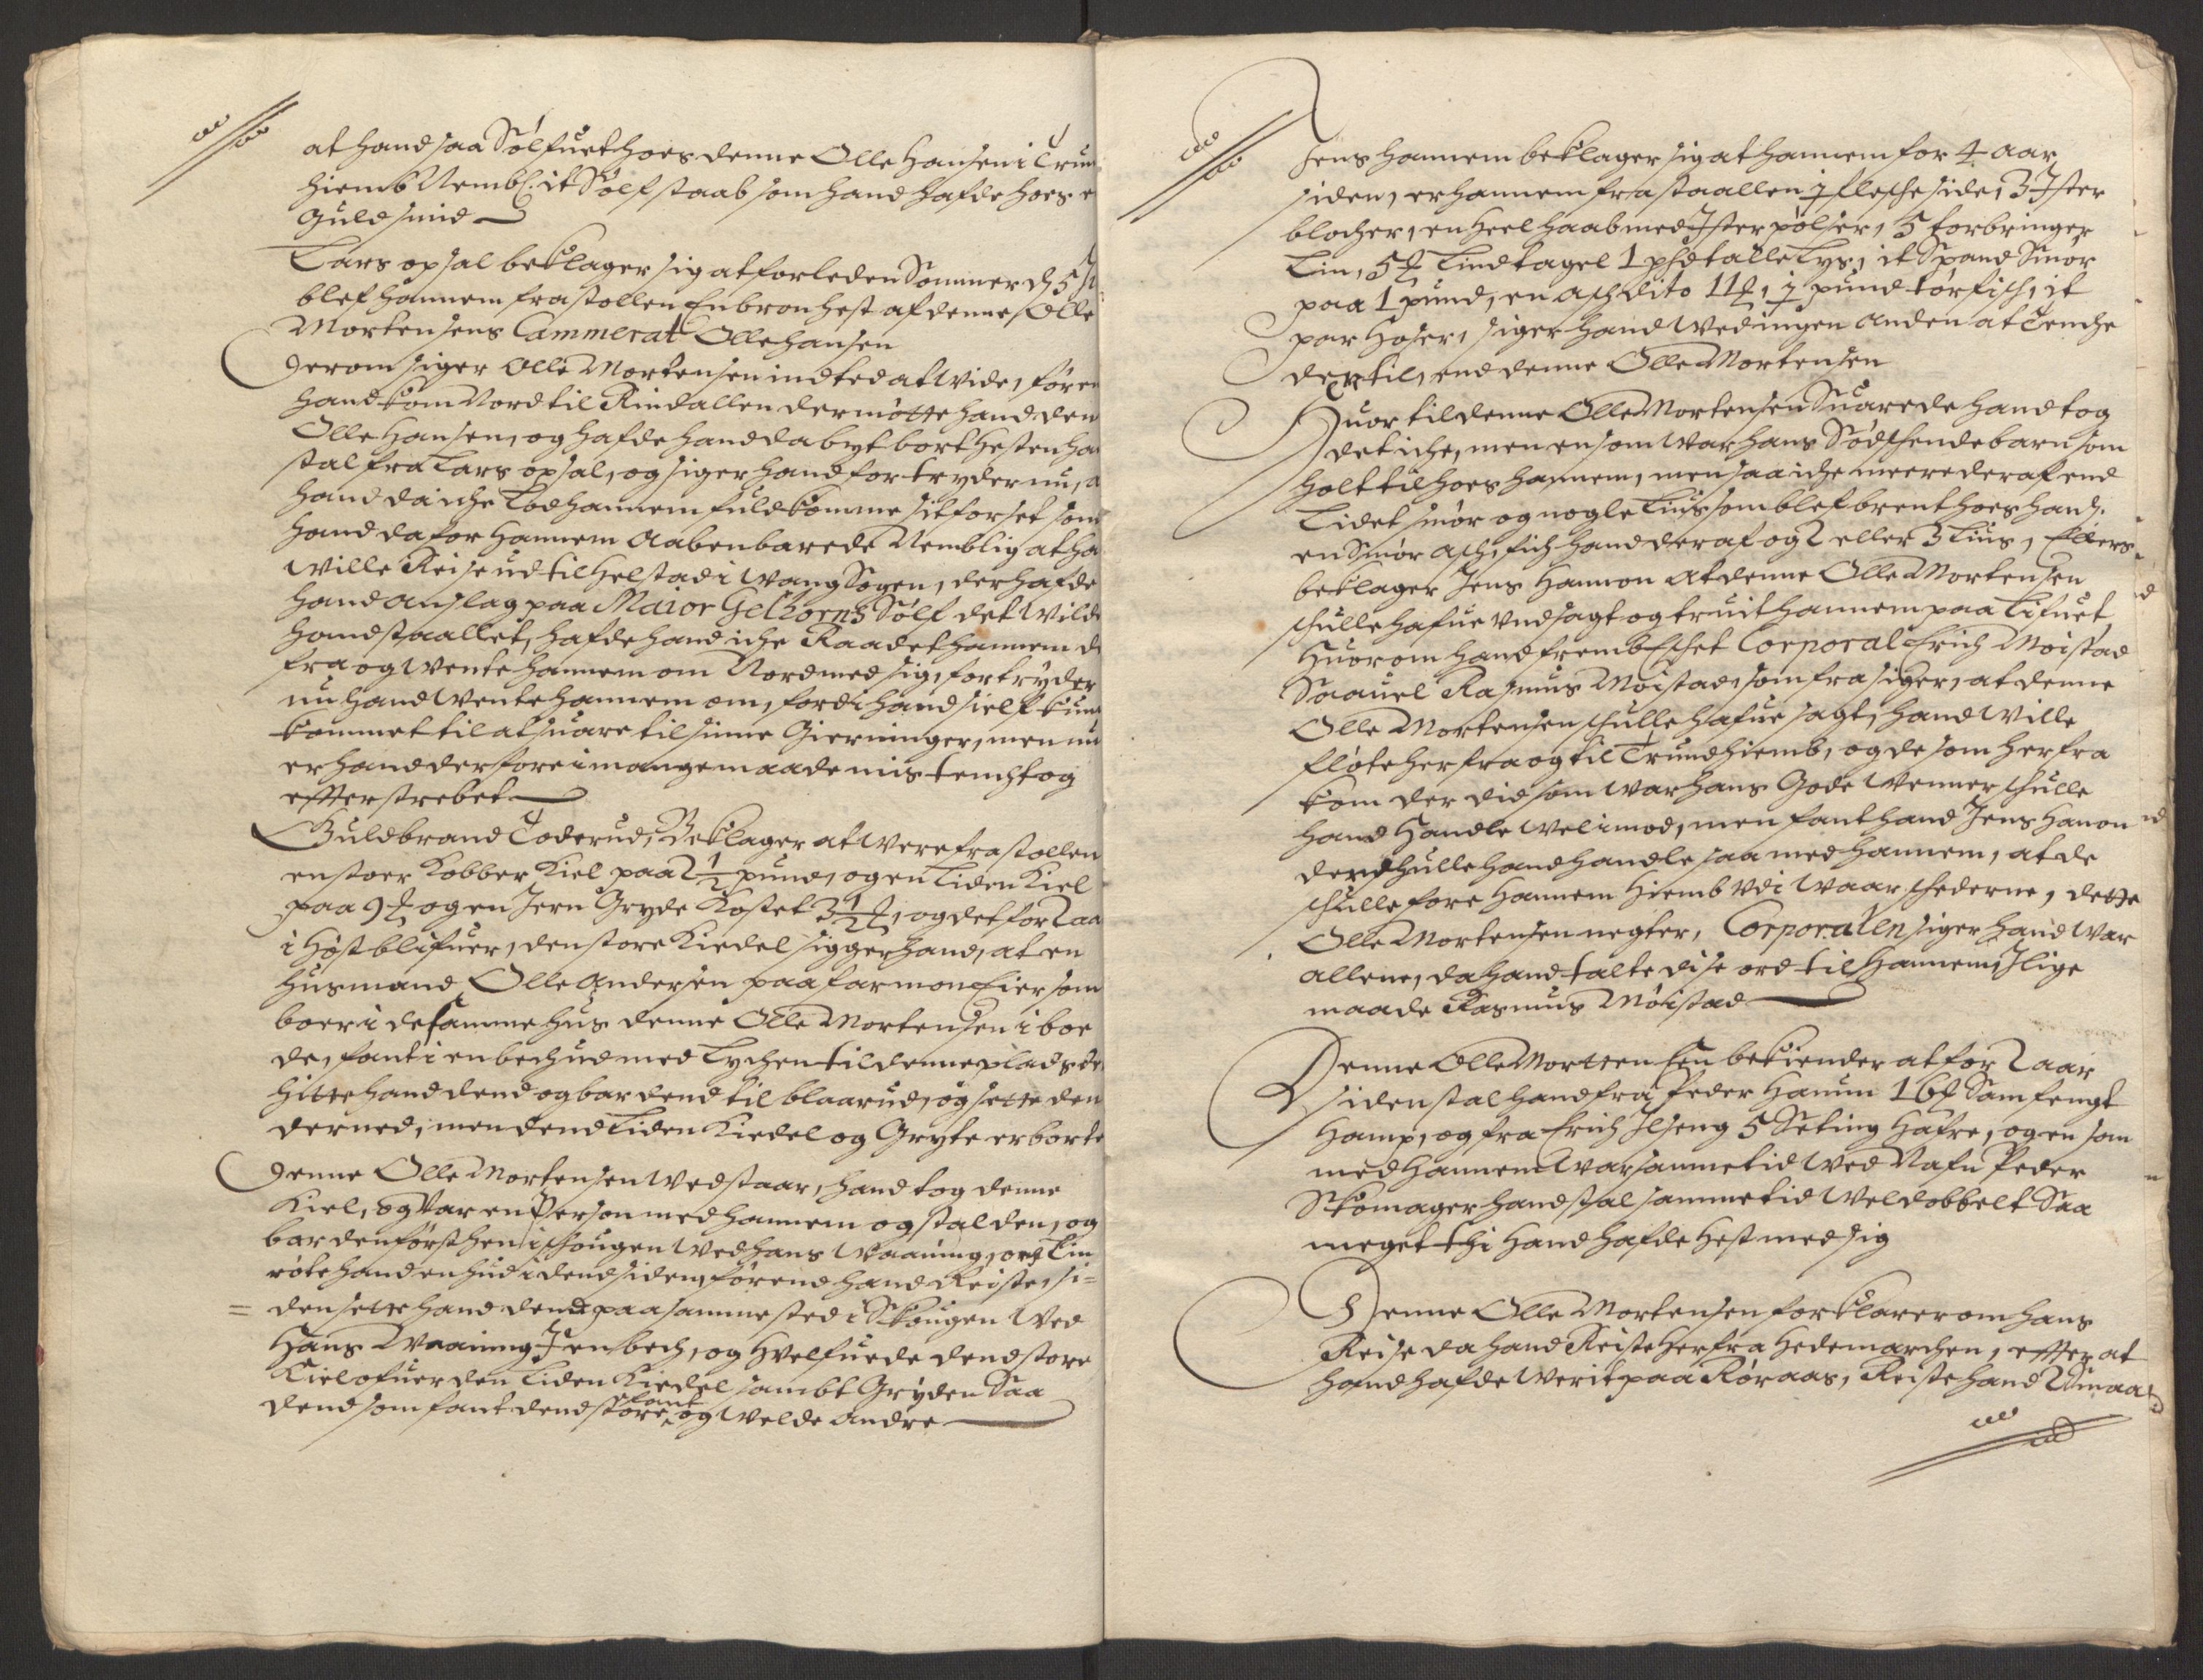 at hand saa Sølfuet hoes denne Olle Hansen i Trun
hiemb Nembl. it Sølfstaab som hand hafde hoes e
Guldsmid
Lars opsal beklager sig at forleden Sommer
blef hannem frastollen En bron hest af denne Olle
Mortensens Cammerat Olle Hansen
Derom siger Olle Mortensen indted at wide, føren
hand kom Nord til Rindallen der møtte hand den
Olle Hansen, og hafde hand da byt bort Hesten ha
stal fra Lars opsal, og siger hand fortryder nu, a
hand da iche Lod hannem fuldkomme sit forset som
hand da for Hannem Aabenbarede Nemblig at ha
wille Reise ud til Helstad i Wang Sogen, der hafde
hand anslag paa Maior Gelhorns Sølf det wilde
hand staallet, hafde hand iche Raadet hannem d
fra og wente hannem om Nord med sig, fortryder
nu hand wente hannem om, fordi hand sielf kun
kommet til at suare til sinne Gierninger, men nu
er hand derfore i mange maade mistencht og
effterstrebet
Guldbrand Toderud, Beklager at were frastollen
en stoer Kobber Kiel paa 2 1/2 pund, og en Liden Kiel
paa 9 ℔ og en Jern Gryde Kostet 3 1/2 ℔, og det for 2 aa
i Høst blifuer, den store Kiedel sigger hand, at en
Husmand Olle Andersen paa farmon Eier som
boer i de samme Hus denne Olle Mortensen i boe
de, fant i en bech ud med Lychen til denne plads de
hitte hand dend og bar dend til blaarud, og sette den
der ned, men dend Liden Kiedel og Gryte er borte
Denne Olle Mortensen wedstaar, hand tog denne
Kiel, og war en Person med hannem og stal den, og
bar den først hen i schougen wed hans Waaning, og Lin
røte hand en hud i dend siden, førend hand Reiste, si=
= den sette hand dend paa samme sted i Skougen wed
Hans Waaning I en bech, og Hvelfuede dend store
Kiel ofuer den Liden Kiedel sambt Gryden Saa
dend som fant dend store, fant og welde andre
Jens hannem beklager sig at hannem for 4 aar
siden, er hannem frastaallen 1/2 flesche side, 3 Ister
blocher, en Heel haab med Ister pølser, 5 forbringer
Lin, 5 ℔ Lindtagel 1 pund talle Lys, it Spand Smør
paa 1 pund, en asch dito 11 ℔, 1/2 pund tørfisch, it
par Hoser, siger hand wed ingen anden at Tenche
der til, end denne Olle Mortensen
Huortil denne Olle Mortensen Suarede hand tog
det iche, men en som war hans Sødschendebarn som
holt til hoes hannem, men saa iche meere der af end
Lidet smør og nogle Lius som blef brent hoes hand.
en Smør asch, fich hand der af og 2 eller 3 Lius, Ellers
beklager Jens Hannon at denne Olle Mortensen
schulle hafue undsagt og truit hannem paa Lifuet,
Huorom hand fremb Eschet Corporal Erich Moistad
Saauel Rasmus Moistad, som fra siger, at denne
Olle Mortensen schulle hafue sagt, hand wille
fløte her fra og til Trundhiemb, og de som her fra
kom der did som war hans Gode Wenner schulle
hand Handle wel imod, men fant hand Jens Hanon
der, schulle hand handle saa med hannem, at de
schulle føre Hannem Hiemb udi waar schederne, dette
Olle Mortensen negter, Corporalen siger hand war
allene, da hand talte dise ord til Hannem, I lige
maade Rasmus Möistad
Denne Olle Mortten sen bekiender at for 2 aar
siden stal hand fra Peder Hanum 16 ℔ Samfengt
Hamp, og fra Erich Ilseng 5 Setting Hafre, og en som
med Hannem war samme tid wed Nafn Peder
Skomager hand stal samme tid wel dobbelt Saa
meget thi Hand hafde Hest med sig
Denne Olle Mortensen forklarer om hans
Reise da hand Reiste her fra Hedemarchen, effter at
hand hafde werit paa Røraas, Reiste hand